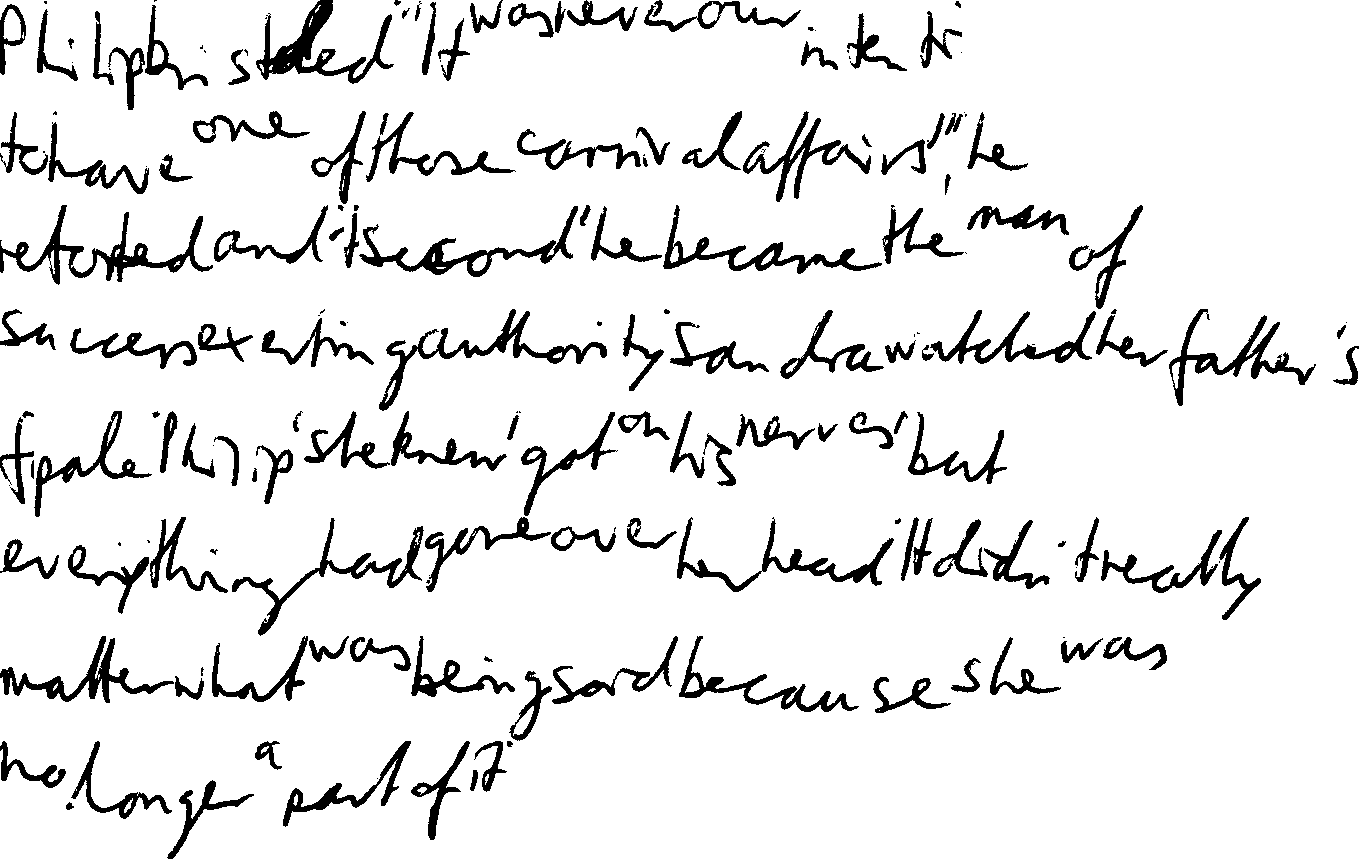 Philip bristled "It was never our intenti
to have one of those carnival affairs", he
retorted and it second he became the man of
success exerting authority Sandra watched her father's
f pale Philip she knew got on his nerves but
everything had gone over her head It didn't really
matter what was being said because she was
no longer a part of it